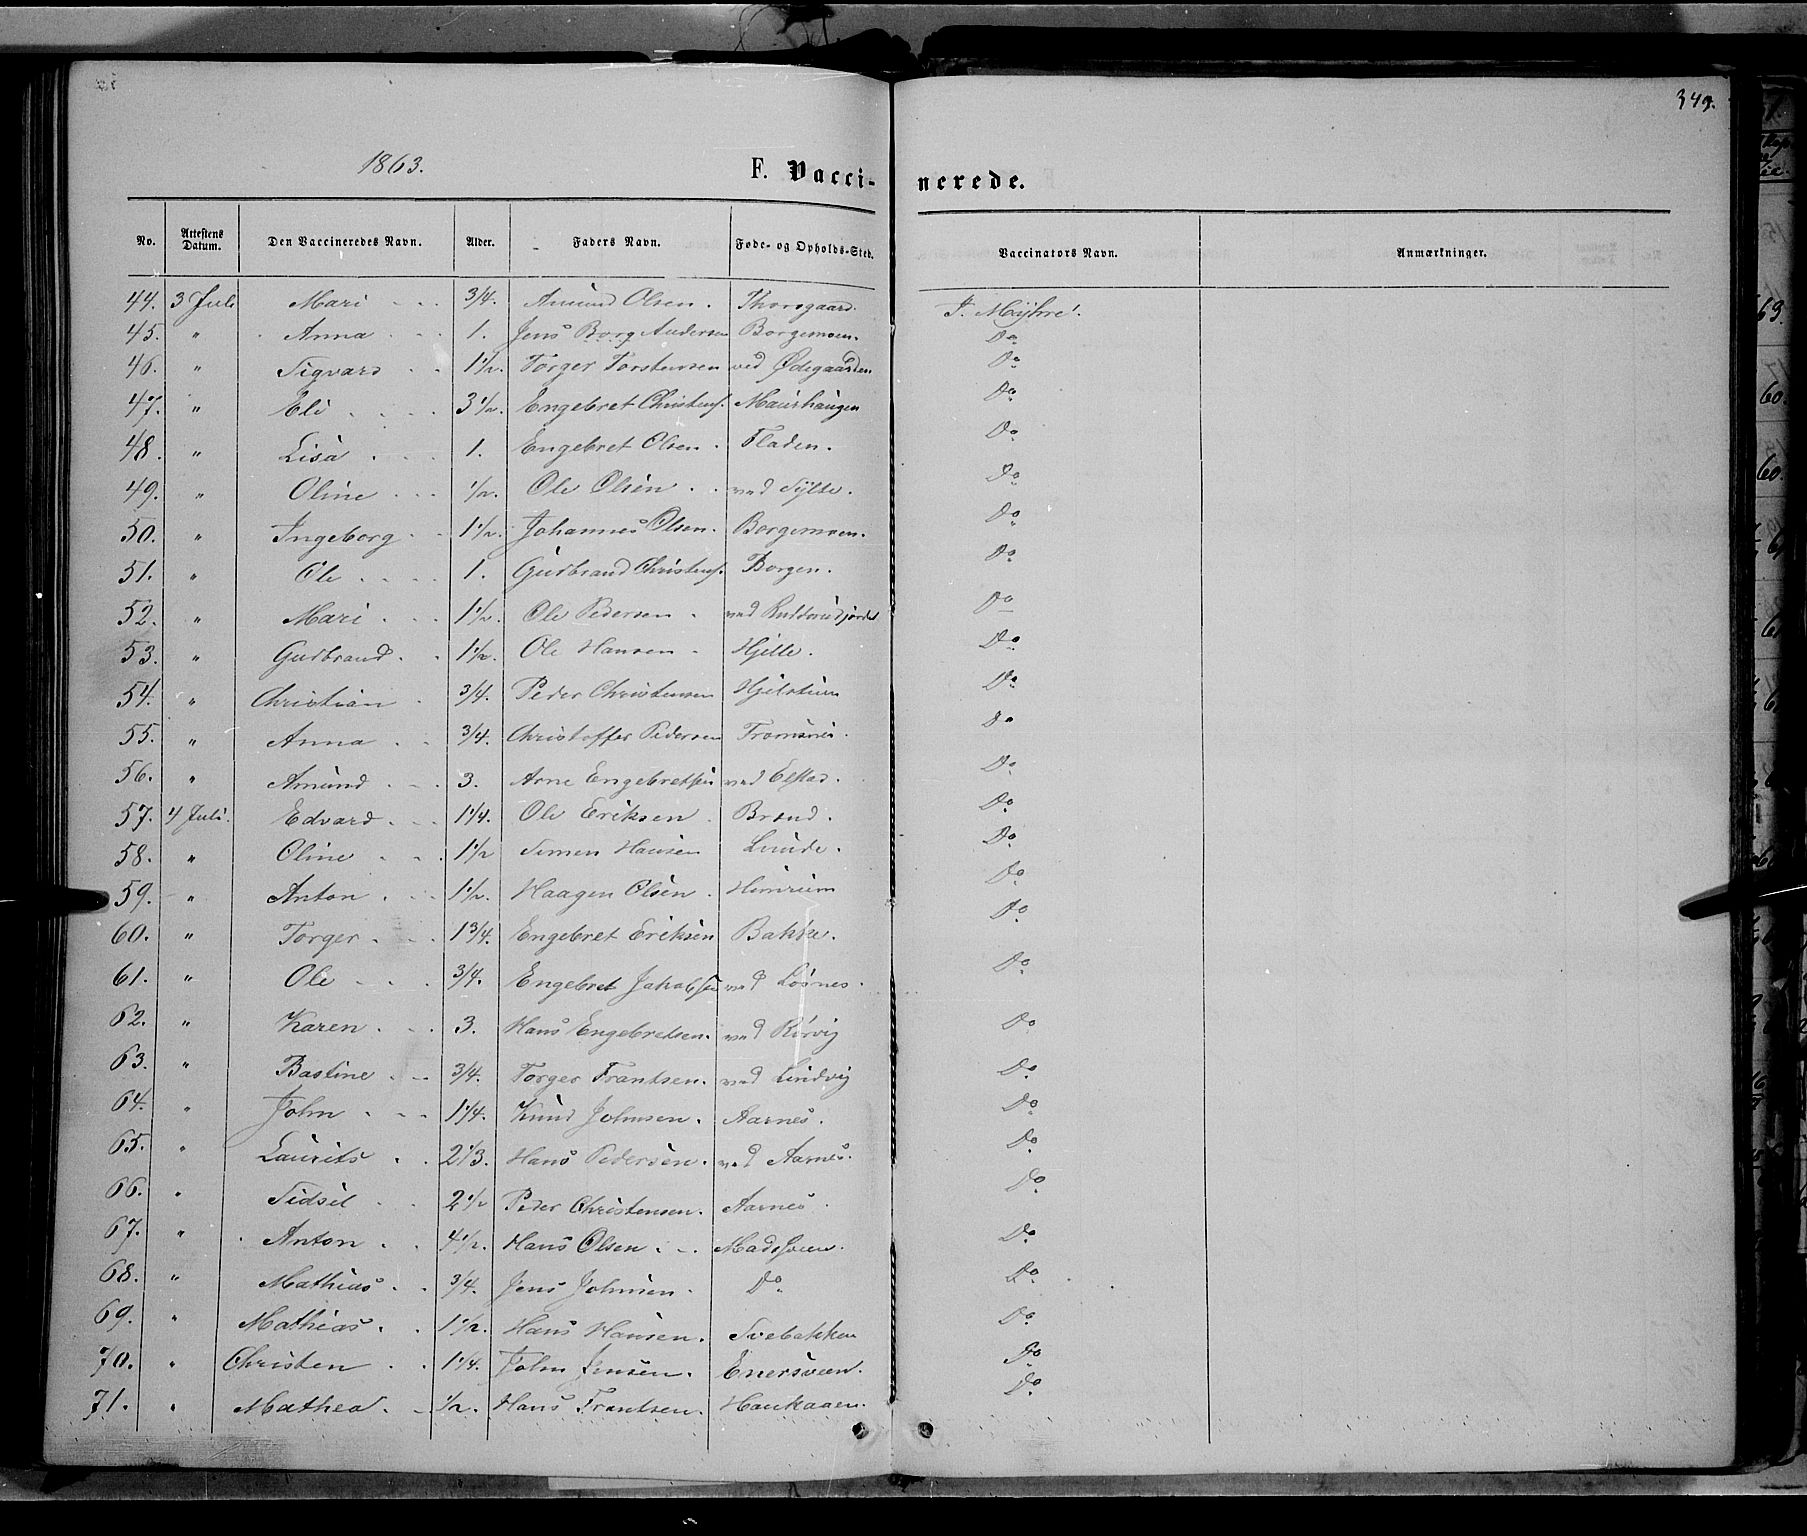 349.
1863.
F. Vacci- nerede.
No. Attestens Datum. Den Vaccineredes Navn. Alder. Faders Navn. Føde- og Opholds-Sted. Vaccinators Navn. Anmærkninger.
44. 3 Juli Mari 3/4. Amund Olsen. Thorsgaard. J. Myhre.
45. " Anna 1. Jens Borg Andersen Borgemoen. Do
46. " Sigvard 1 1/2. Torger Torstensen ved Ødegaarden Do
47. " Eli 3 1/2. Engebret Christens. Maurhaugen Do
48. " Lisa 1. Engebret Olsen. Fladen. Do
49. " Oline 1/2. Ole Olsen ved Sylte. Do
50. " Ingeborg 1 1/2. Johannes Olsen. Borgemoen. Do
51. " Ole 1. Gudbrand Christens. Borgen. Do
52. " Mari 1 1/2. Ole Pedersen ved Do
53. " Gudbrand 1 1/2. Ole Hansen Hjelle. Do
54. " Christian 3/4. Peder Christensen Hjelstuen Do
55. " Anna 3/4. Christoffer Pedersen Tromsnes. Do
56. " Amund 3. Arne Engebretsen ved Elstad. Do
57. 4 Juli. Edvard 1 1/4. Ole Eriksen Brand. Do
58. " Oline 1 1/2 Simen Hansen Linde. Do
59. " Anton 1 1/2. Haagen Olsen Do
60. " Torger 1 3/4. Engebret Eriksen Bakke. Do
61. " Ole 3/4. Engebret Jakobsen ved Løsnes. Do
62. " Karen 3. Hans Engebretsen. ved Rørvig Do
63. " Bastine 3/4. Torger Frantsen. ved Lindvig Do
64. " John 1 1/4. Knud Johnsen. Aarnes. Do
65. " Laurits 2 1/3. Hans Pedersen. ved Aarnes. Do
66. " Sidsel 2 1/2 Peder Christensen. Aarnes. Do
67. " Anton 4 1/2. Hans Olsen Madssveen. Do
68. " Mathias 3/4. Jens Johnsen. Do Do
69. " Mathias 1 1/2. Hans Hansen. Svebakken Do
70. " Christen 1 1/4. John Jensen. Enersveen. Do
71. " Mathea 1/2. Hans Frantsen. Haukaaen. Do